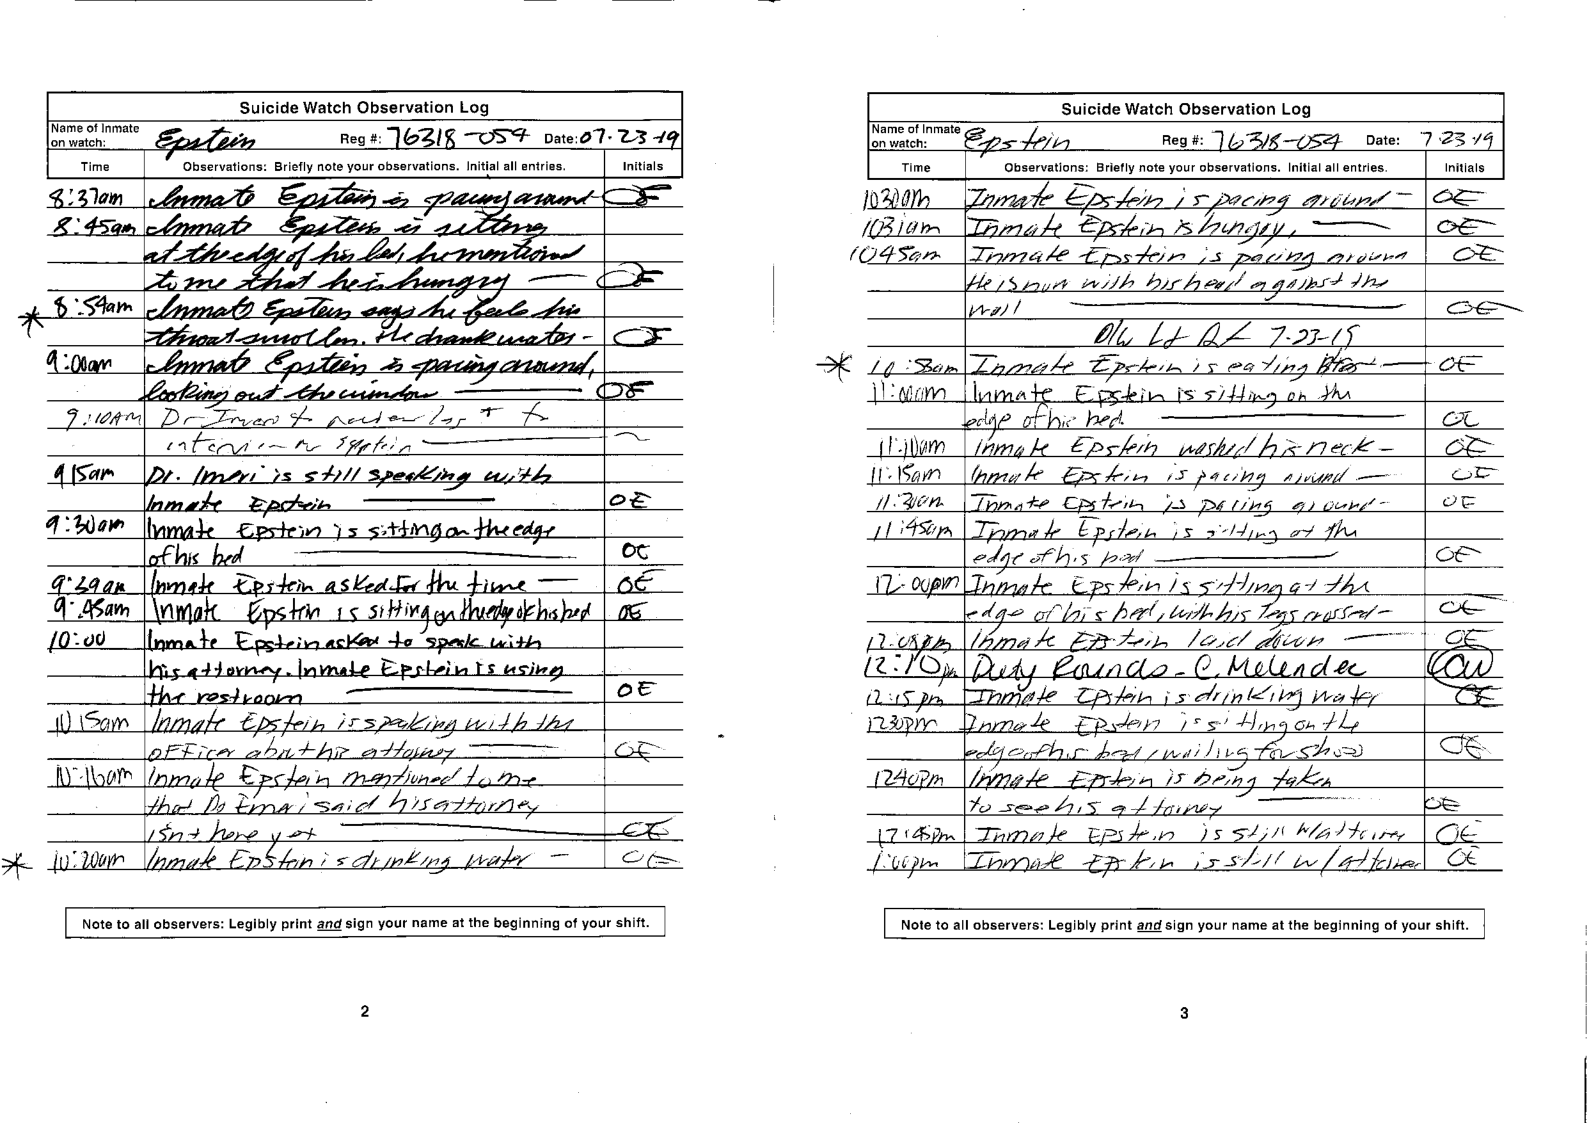 Suicide Watch Observation Log
Name of Inmate on watch: Epstein Reg #: 76318-054 Date: 07-23-19
Time Observations: Briefly note your observations. Initial all entries. Initials
8:37am Inmate Epstein is pacing around OE
8:45am Inmate Epstein is sitting
at the edge of his bed, he mentioned
to me that he is hungry OE
* 8:54am Inmate Epstein says he feels his
throat swollen. He drank water - OE
9:00am Inmate Epstein is pacing around,
looking out the window OE
9:10AM Dr
interview Epstein
915am Dr. Imeri is still speaking with
Inmate Epstein OE
9:30am Inmate Epstein is sitting on the edge
of his bed OE
9:39am Inmate Epstein asked for the time OE
9:45am Inmate Epstein is sitting on the edge of his bed OE
10:00 Inmate Epstein asked to speak with
his attorney. Inmate Epstein is using
the restroom OE
10:15am Inmate Epstein is speaking with the
officer about his attorney OE
10:16am Inmate Epstein mentioned to me
that Dr Emeri said his attorney
isn't here yet OE
* 10:20am Inmate Epstein is drinking water - OE
Note to all observers: Legibly print and sign your name at the beginning of your shift.
2
Suicide Watch Observation Log
Name of Inmate on watch: Epstein Reg #: 76318-054 Date: 7-23-19
Time Observations: Briefly note your observations. Initial all entries. Initials
1030am Inmate Epstein is pacing around - OE
1031am Inmate Epstein is hungry. OE
1045am Inmate Epstein is pacing around OE
He is now with his head against the
wall OE
7-23-19
* 10:58am Inmate Epstein is eating OE
11:00am Inmate Epstein is sitting on the
edge of his bed. OE
11:10am Inmate Epstein washed his neck - OE
11:15am Inmate Epstein is pacing around - OE
11:30am Inmate Epstein is pacing around - OE
11:45am Inmate Epstein is sitting at the
edge of his bed OE
12:00pm Inmate Epstein is sitting at the
edge of his bed, with his legs crossed - OE
12:08pm Inmate Epstein laid down OE
12:10pm Duty Rounds - C. Melendec
12:15pm Inmate Epstein is drinking water OE
1230pm Inmate Epstein is sitting on the
edge of his bed, waiting for OE
1240pm Inmate Epstein is being taken
to see his attorney OE
12:45pm Inmate Epstein is still w/attorney OE
1:00pm Inmate Epstein is still w/attorney OE
Note to all observers: Legibly print and sign your name at the beginning of your shift.
3